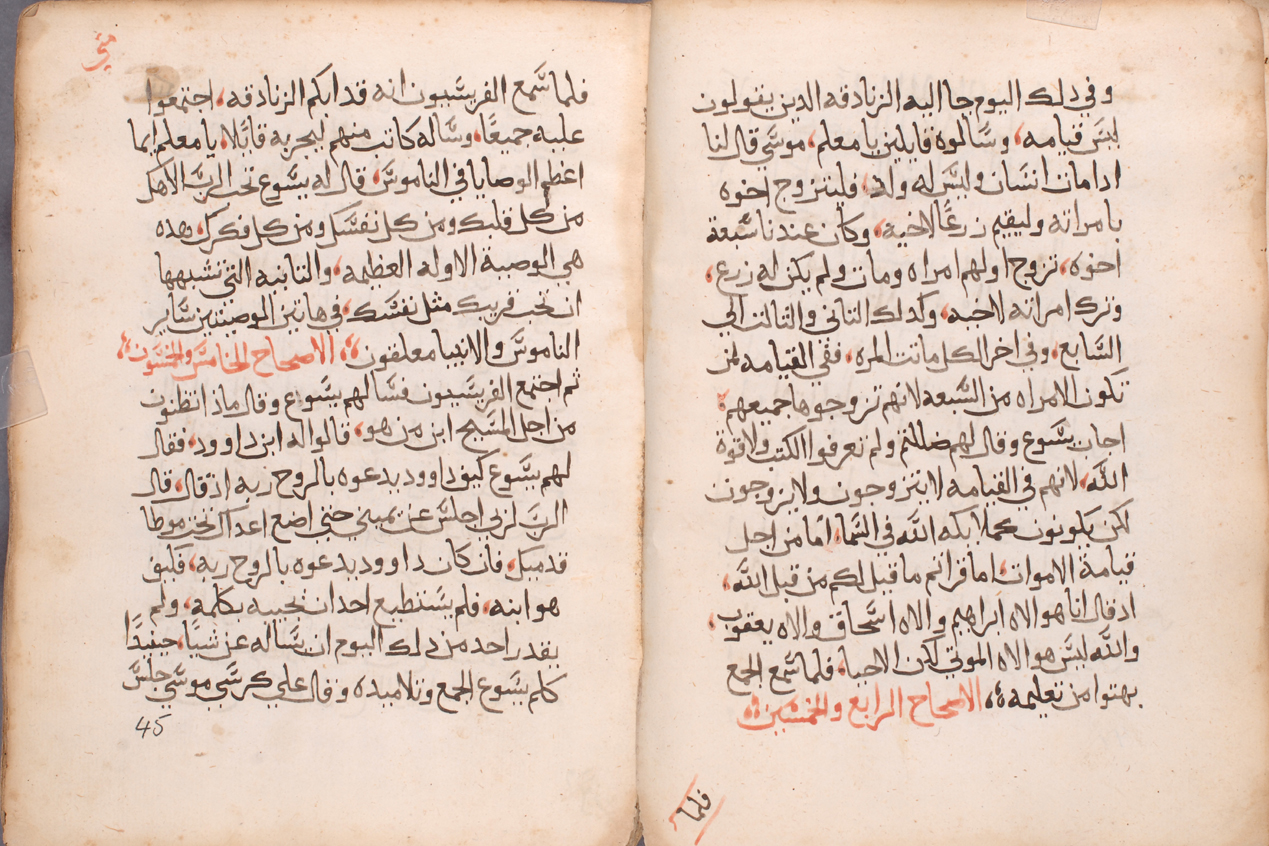 وفي دلك اليوم جا اليه الزنادقه الدين يقولون
ليس قيامه، وسالوه قايلين يا معلم، موسي قال لنا
ادا مات انسان وليس له ولد، فليتزوج اخوه
بامراته وليقيم زرعًا لاخيه، وكان عندنا سبعة
اخوه، تزوج اولهم امراه ومات ولم يكن له زرع،
وترك امراته لاخيه، وكدلك التاني والتالت الي
السابع، وفي اخر الكل ماتت المره، ففي القيامه لمن
تكون الامراه من السبعه لانهم تزوجوها جميعهم،
اجاب يسوع وقال لهم ضللتم ولم تعرفوا الكتب ولا قوة
الله، لانهم في القيامه لا يتزوجون ولا يزوجون
لكن يكونون كملايكه الله في السما، اما من اجل
قيامة الاموات، اما قراتم ما قيل لكم من قبل الله،
اد قال انا هو الاه ابراهيم والاه اسحاق والاه يعقوب،
والله ليس هو الاه الموتي لكن الاحيا، فلما سمع الجمع
بهتوا من تعليمه ؞ الاصحاح الرابع والخمسين ؞
فلما
متي
فلما سمع الفريسيون انه قد ابكم الزنادقه، اجتمعوا
عليه جميعًا، وساله كاتب منهم ليجربه قايلا، يا معلم ايما
اعظم الوصايا في الناموس، قال له يسوع تحب الرب الاهك
من كل قلبك ومن كل نفسك ومن كل فكرك، هده
هي الوصية الاوله العظيمه، والتانيه التي تشبهها
ان تحب قريبك مثل نفسك، في هاتين الوصيتين ساير
الناموس والانبيا معلقون ؞ الاصحاح الخامس والخمسون ؞
ثم اجتمع الفريسيون فسالهم يسوع وقال مادا تظنون
من اجل المسيح ابن من هو، قالوا له ابن داوود، فقال
لهم يسوع كيف داوود يدعوه بالروح ربه اد قال، قال
الرب لربي اجلس عن يميني حتي اضع اعداك تحت موطا
قدميك، فان كان داوود يدعوه بالروح ربه، فكيف
هو ابنه، فلم يستطيع احد ان يجيبه بكلمه، ولم
يقدر احد من دلك اليوم ان يساله عن شيئا، حينيدًا
كلم يسوع الجمع وتلاميده وقال علي كرسي موسي جلس
45